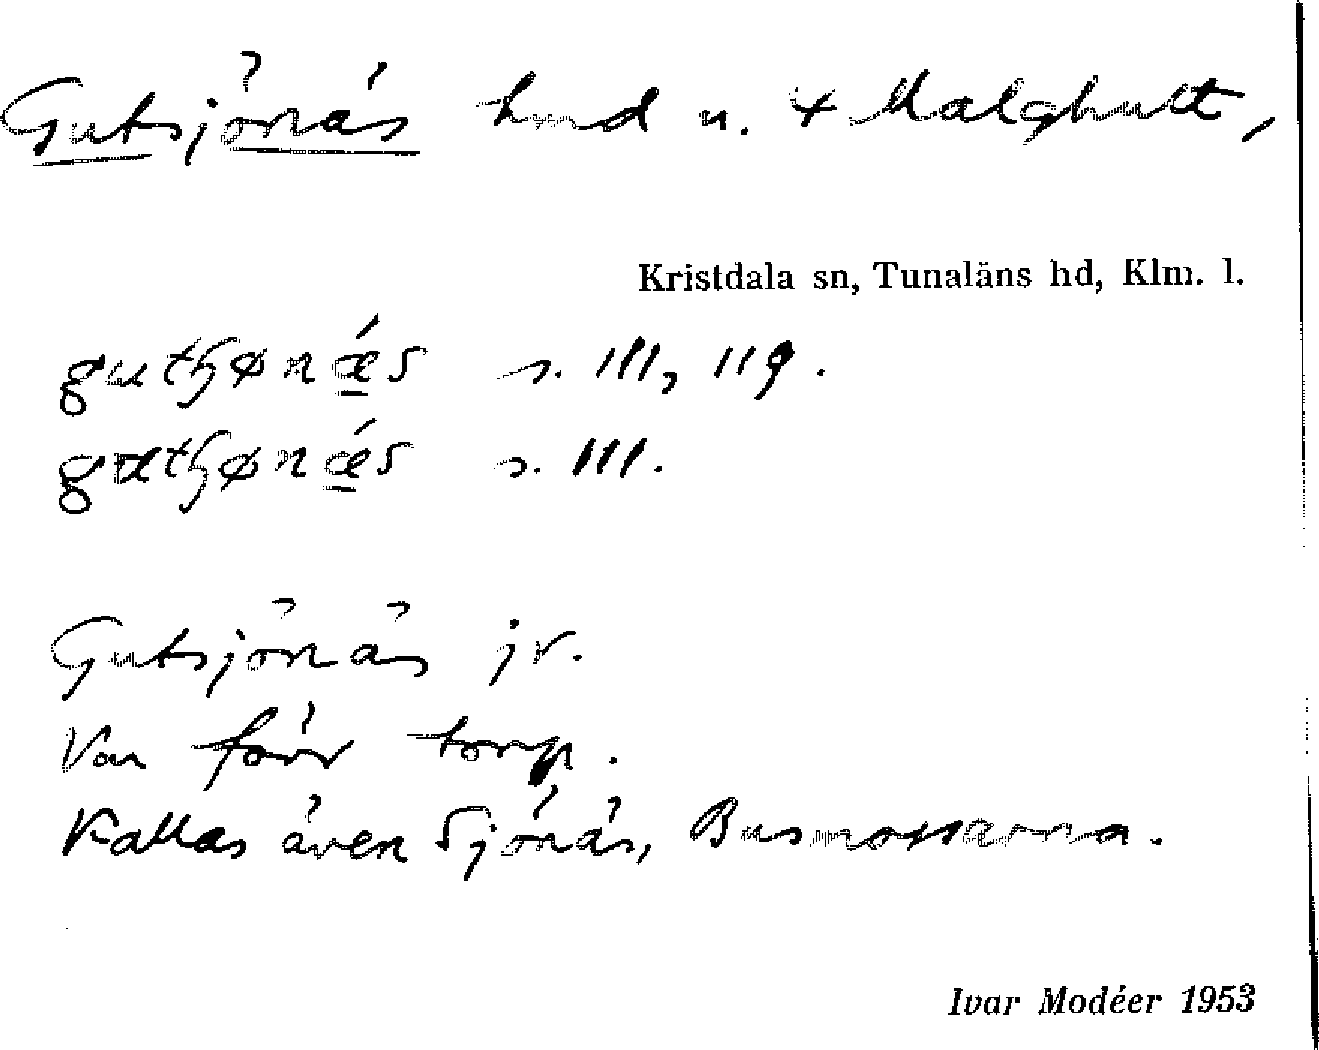 Gutsjönäs hmd u. + Malghult,
Kristdala sn, Tunaläns hd, Klm. l.
gutʃønǽs s. III, 119.
gʉtʃønǽs s. III.
Gutsjönäs jr.
Var förr torp.
Kallas även Sjönäs, Busmossarna.
Ivar Modéer 1953